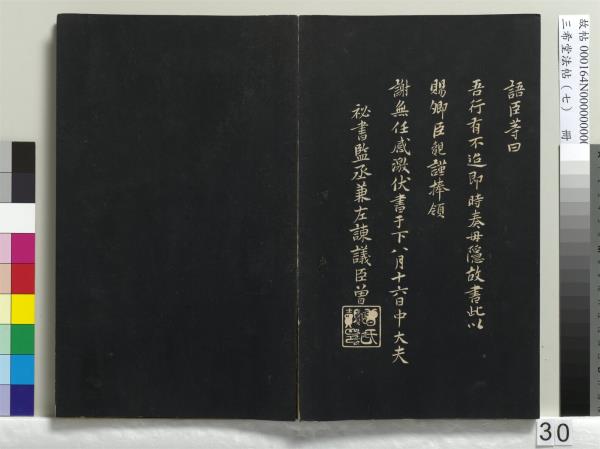 語臣等曰
吾行有不逮即時奏毋隱故書此以
賜卿臣親謹捧領
謝無任感激伏書于下八月十六日中大夫
祕書監丞兼左諫議臣曾
故帖 000164N000000000
三希堂法帖（七） 冊
30